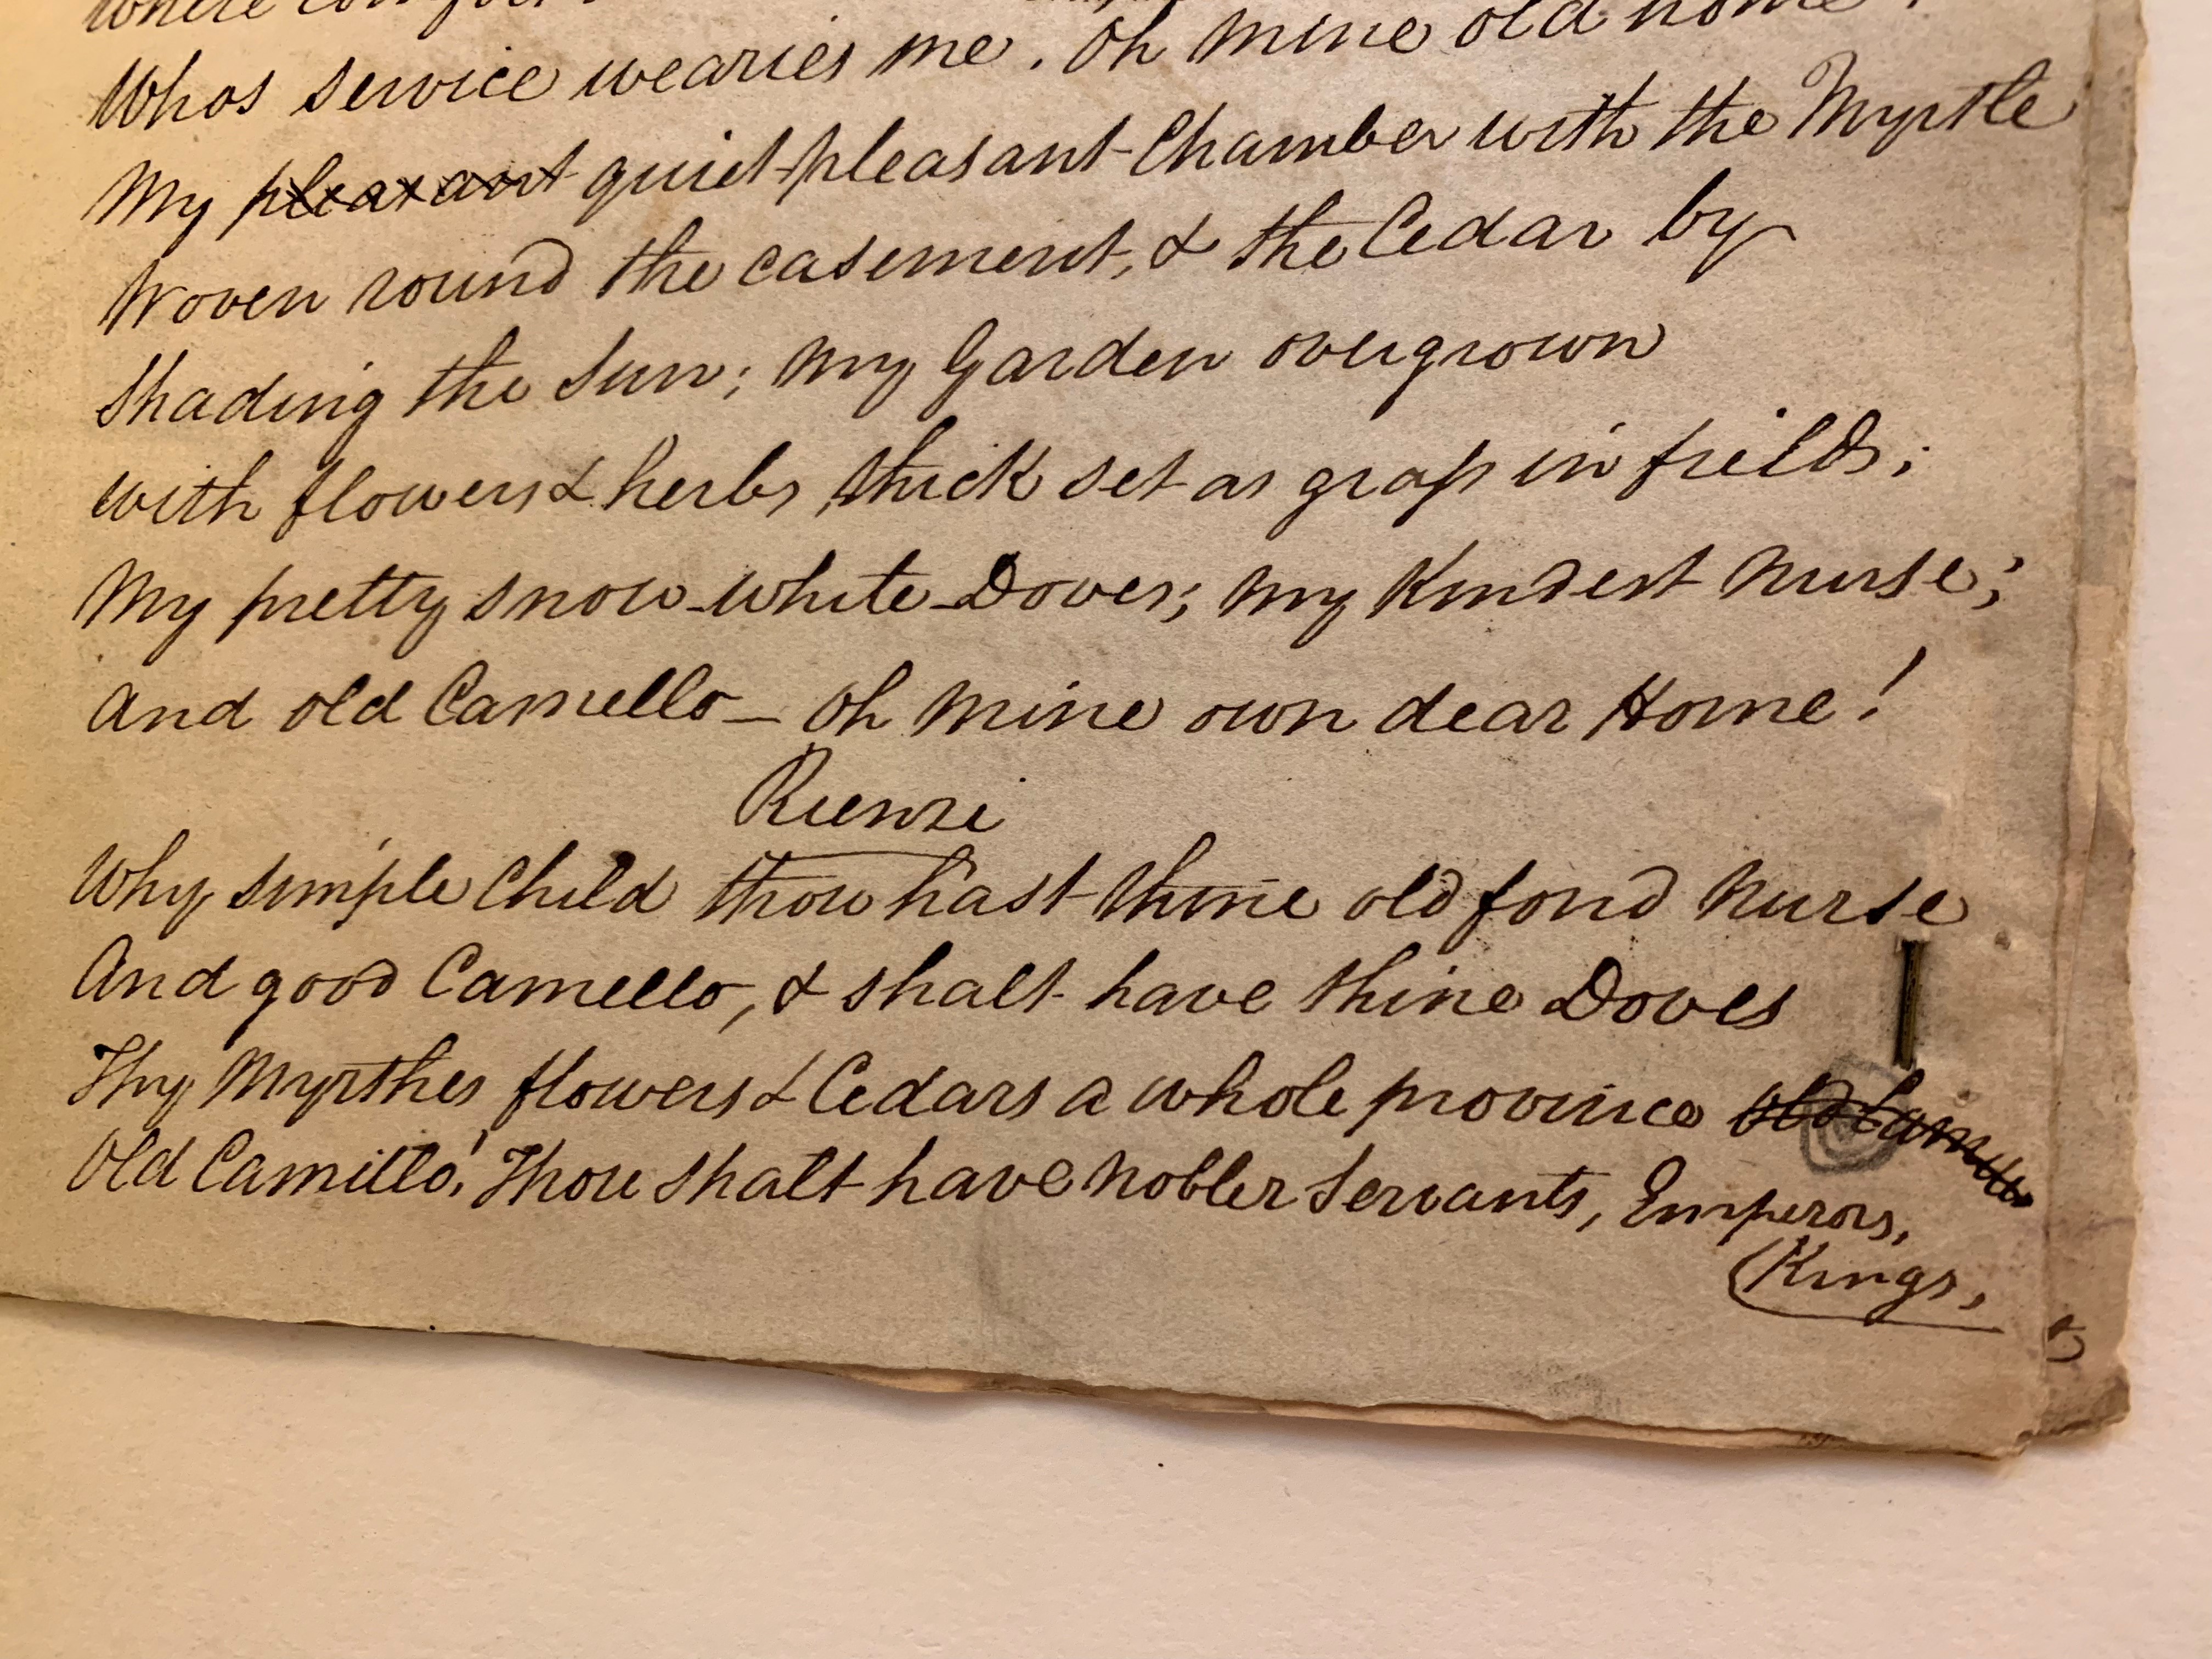 Whos service wearies me. Oh mine old home!
My pleasant quiet pleasant Chamber with the Myrtle
Woven round the casement, & the Cedar by
Shading the Sun; my Garden overgrown
with flowers & herbs, thick set as grass in fields;
My pretty snow-white Doves; my Kindest Nurse;
And old Camello — Oh mine own dear Home!
Rienzi
Why simple Child thou hast thine old fond Nurse
And good Camello, & shalt have thine Doves
Thy Myrthes flowers & Cedars a whole province old Camillo
Old Camillo! Thou shalt have Nobler Servants, Emperors,
(Kings,